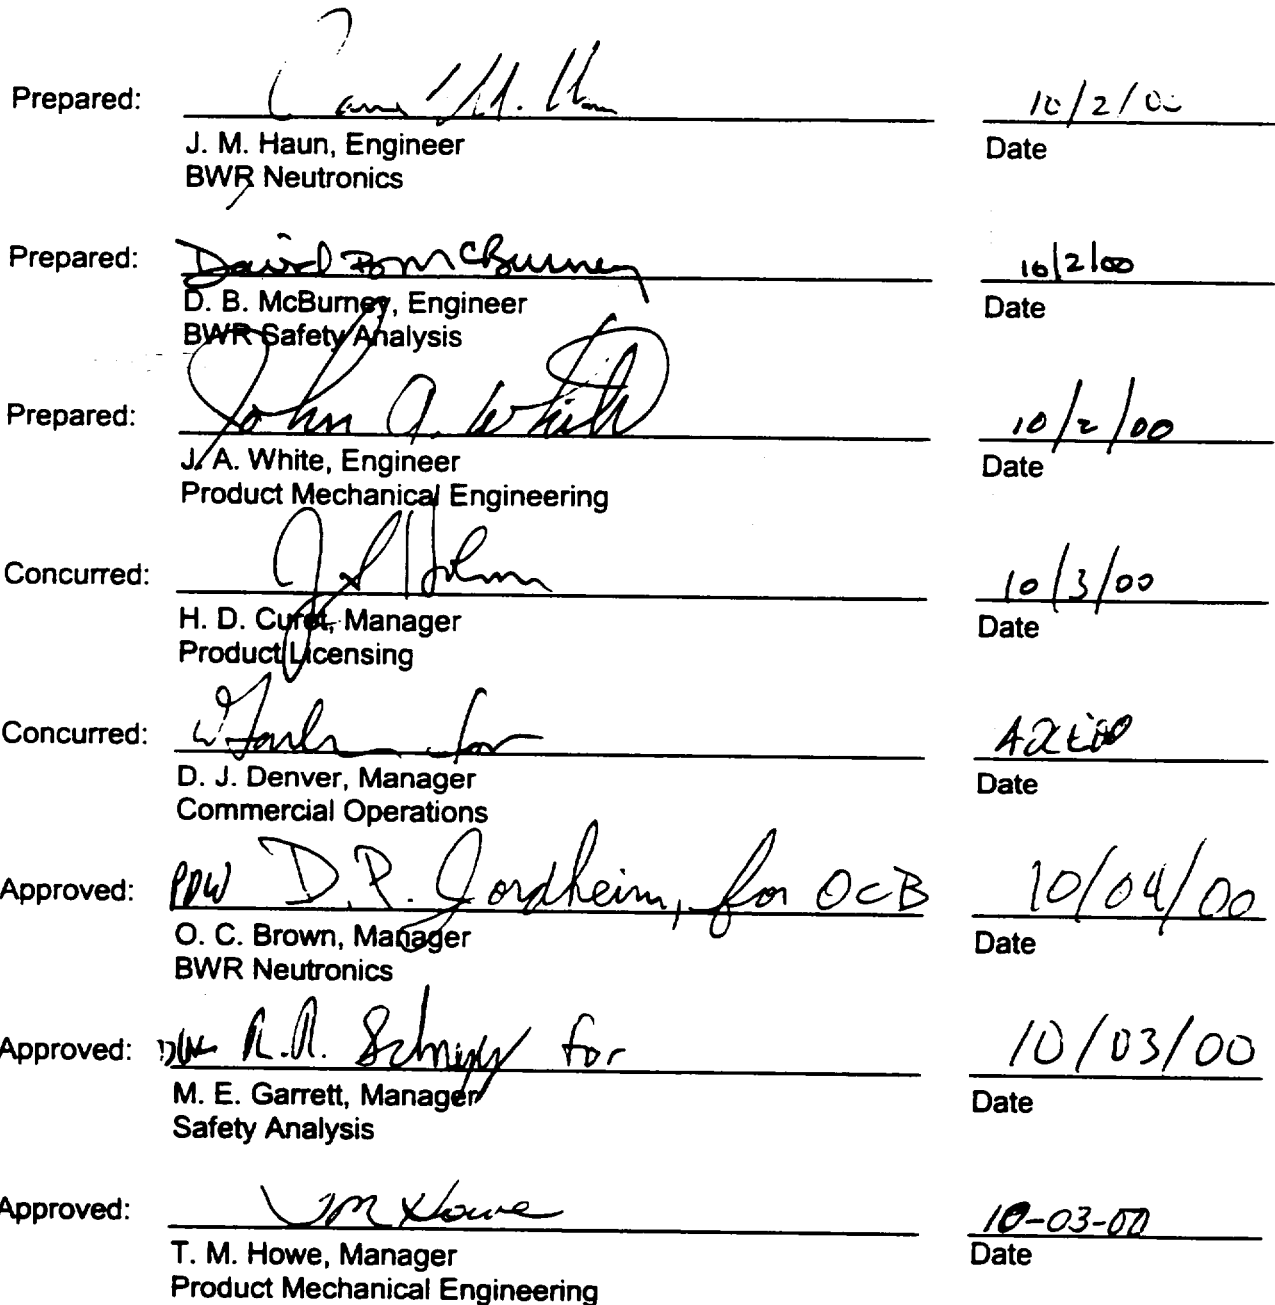 Prepared: James M. Haun 10/2/00
J. M. Haun, Engineer Date
BWR Neutronics
Prepared: David B McBurney 10/2/00
D. B. McBurney, Engineer Date
BWR Safety Analysis
Prepared: John A. White 10/2/00
J. A. White, Engineer Date
Product Mechanical Engineering
Concurred: J S Holm 10/3/00
H. D. Curet, Manager Date
Product Licensing
Concurred: for
D. J. Denver, Manager Date
Commercial Operations
Approved: PDW D. P. Jordheim, for OCB 10/04/00
O. C. Brown, Manager Date
BWR Neutronics
Approved: R.R. for 10/03/00
M. E. Garrett, Manager Date
Safety Analysis
Approved: TM Howe 10-03-00
T. M. Howe, Manager Date
Product Mechanical Engineering